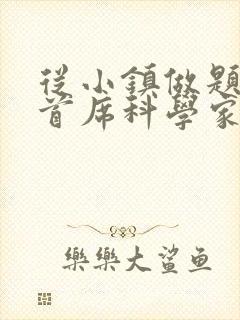 從小鎮做題
首席科學家
樂樂大鯊鱼